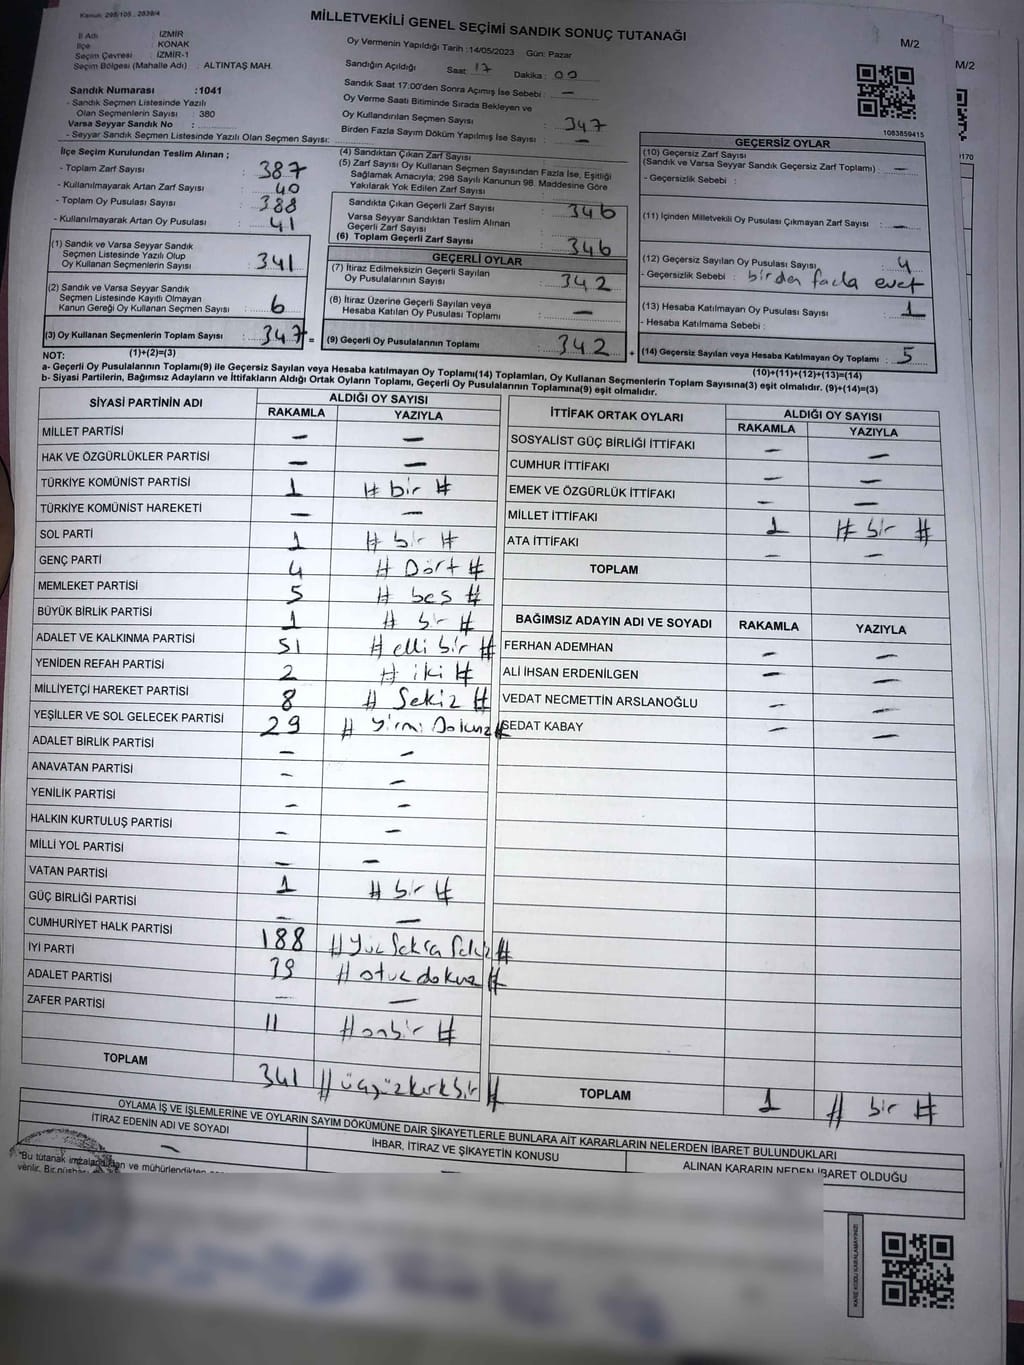 Kanun: 298/105 , 2839/4
MİLLETVEKİLİ GENEL SEÇİMİ SANDIK SONUÇ TUTANAĞI
M/2
İl Adı : İZMİR
İlçe : KONAK
Seçim Çevresi : İZMİR-1
Seçim Bölgesi (Mahalle Adı) : ALTINTAŞ MAH.
Sandık Numarası :1041
- Sandık Seçmen Listesinde Yazılı
Olan Seçmenlerin Sayısı : 380
Varsa Seyyar Sandık No :
- Seyyar Sandık Seçmen Listesinde Yazılı Olan Seçmen Sayısı:
Oy Vermenin Yapıldığı Tarih :14/05/2023 Gün: Pazar
Sandığın Açıldığı Saat : 17 Dakika : 00
Sandık Saat 17:00'den Sonra Açımış İse Sebebi : –
Oy Verme Saati Bitiminde Sırada Bekleyen ve
Oy Kullandırılan Seçmen Sayısı : 347
Birden Fazla Sayım Döküm Yapılmış İse Sayısı : –
1083859415
İlçe Seçim Kurulundan Teslim Alınan ;
- Toplam Zarf Sayısı : 387
- Kullanılmayarak Artan Zarf Sayısı : 40
- Toplam Oy Pusulası Sayısı : 388
- Kullanılmayarak Artan Oy Pusulası : 41
(1) Sandık ve Varsa Seyyar Sandık
Seçmen Listesinde Yazılı Olup
Oy Kullanan Seçmenlerin Sayısı : 341
(2) Sandık ve Varsa Seyyar Sandık
Seçmen Listesinde Kayıtlı Olmayan
Kanun Gereği Oy Kullanan Seçmen Sayısı : 6
(3) Oy Kullanan Seçmenlerin Toplam Sayısı : 347 =
(4) Sandıktan Çıkan Zarf Sayısı
(5) Zarf Sayısı Oy Kullanan Seçmen Sayısından Fazla İse, Eşitliği
Sağlamak Amacıyla; 298 Sayılı Kanunun 98. Maddesine Göre
Yakılarak Yok Edilen Zarf Sayısı
Sandıkta Çıkan Geçerli Zarf Sayısı : 346
Varsa Seyyar Sandıktan Teslim Alınan
Geçerli Zarf Sayısı :
(6) Toplam Geçerli Zarf Sayısı : 346
GEÇERLİ OYLAR
(7) İtiraz Edilmeksizin Geçerli Sayılan
Oy Pusulalarının Sayısı : 342
(8) İtiraz Üzerine Geçerli Sayılan veya
Hesaba Katılan Oy Pusulası Toplamı : –
(9) Geçerli Oy Pusulalarının Toplamı : 342 +
GEÇERSİZ OYLAR
(10) Geçersiz Zarf Sayısı
(Sandık ve Varsa Seyyar Sandık Geçersiz Zarf Toplamı) : –
- Geçersizlik Sebebi :
(11) İçinden Milletvekili Oy Pusulası Çıkmayan Zarf Sayısı : –
(12) Geçersiz Sayılan Oy Pusulası Sayısı : 4
- Geçersizlik Sebebi : birden fazla evet
(13) Hesaba Katılmayan Oy Pusulası Sayısı : 1
- Hesaba Katılmama Sebebi :
(14) Geçersiz Sayılan veya Hesaba Katılmayan Oy Toplamı : 5
NOT: (1)+(2)=(3)
(10)+(11)+(12)+(13)=(14)
a- Geçerli Oy Pusulalarının Toplamı(9) ile Geçersiz veya Hesaba katılmayan Oy Toplamı(14) Toplamları, Oy Kullanan Seçmenlerin Toplam Sayısına(3) eşit olmalıdır. (9)+(14)=(3)
b- Siyasi Partilerin, Bağımsız Adayların ve İttifakların Aldığı Ortak Oyların Toplamı, Geçerli Oy Pusulalarının Toplamına(9) eşit olmalıdır.
SİYASİ PARTİNİN ADI ALDIĞI OY SAYISI
RAKAMLA YAZIYLA
MİLLET PARTİSİ – –
HAK VE ÖZGÜRLÜKLER PARTİSİ – –
TÜRKİYE KOMÜNİST PARTİSİ 1 # bir #
TÜRKİYE KOMÜNİST HAREKETİ – –
SOL PARTİ 1 # bir #
GENÇ PARTİ 4 # Dört #
MEMLEKET PARTİSİ 5 # beş #
BÜYÜK BİRLİK PARTİSİ 1 # bir #
ADALET VE KALKINMA PARTİSİ 51 # elli bir #
YENİDEN REFAH PARTİSİ 2 # iki #
MİLLİYETÇİ HAREKET PARTİSİ 8 # Sekiz #
YEŞİLLER VE SOL GELECEK PARTİSİ 29 # Yirmi Dokuz #
ADALET BİRLİK PARTİSİ – –
ANAVATAN PARTİSİ – –
YENİLİK PARTİSİ – –
HALKIN KURTULUŞ PARTİSİ – –
MİLLİ YOL PARTİSİ – –
VATAN PARTİSİ 1 # bir #
GÜÇ BİRLİĞİ PARTİSİ – –
CUMHURİYET HALK PARTİSİ 188 # Yüz Seksen Sekiz #
İYİ PARTİ 39 # otuz dokuz #
ADALET PARTİSİ – –
ZAFER PARTİSİ 11 # onbir #
TOPLAM 341 # üçyüzkırkbir #
İTTİFAK ORTAK OYLARI ALDIĞI OY SAYISI
RAKAMLA YAZIYLA
SOSYALİST GÜÇ BİRLİĞİ İTTİFAKI – –
CUMHUR İTTİFAKI – –
EMEK VE ÖZGÜRLÜK İTTİFAKI – –
MİLLET İTTİFAKI 1 # bir #
ATA İTTİFAKI – –
TOPLAM
BAĞIMSIZ ADAYIN ADI VE SOYADI RAKAMLA YAZIYLA
FERHAN ADEMHAN – –
ALİ İHSAN ERDENİLGEN – –
VEDAT NECMETTİN ARSLANOĞLU – –
SEDAT KABAY – –
TOPLAM 1 # bir #
OYLAMA İŞ VE İŞLEMLERİNE VE OYLARIN SAYIM DÖKÜMÜNE DAİR ŞİKAYETLERLE BUNLARA AİT KARARLARIN NELERDEN İBARET BULUNDUKLARI
İTİRAZ EDENİN ADI VE SOYADI İHBAR, İTİRAZ VE ŞİKAYETİN KONUSU ALINAN KARARIN NEDEN İBARET OLDUĞU
"Bu tutanak ve mühürlendikten
verilir. Bir
KARE KODU KARALAMAYINIZ!
M/2